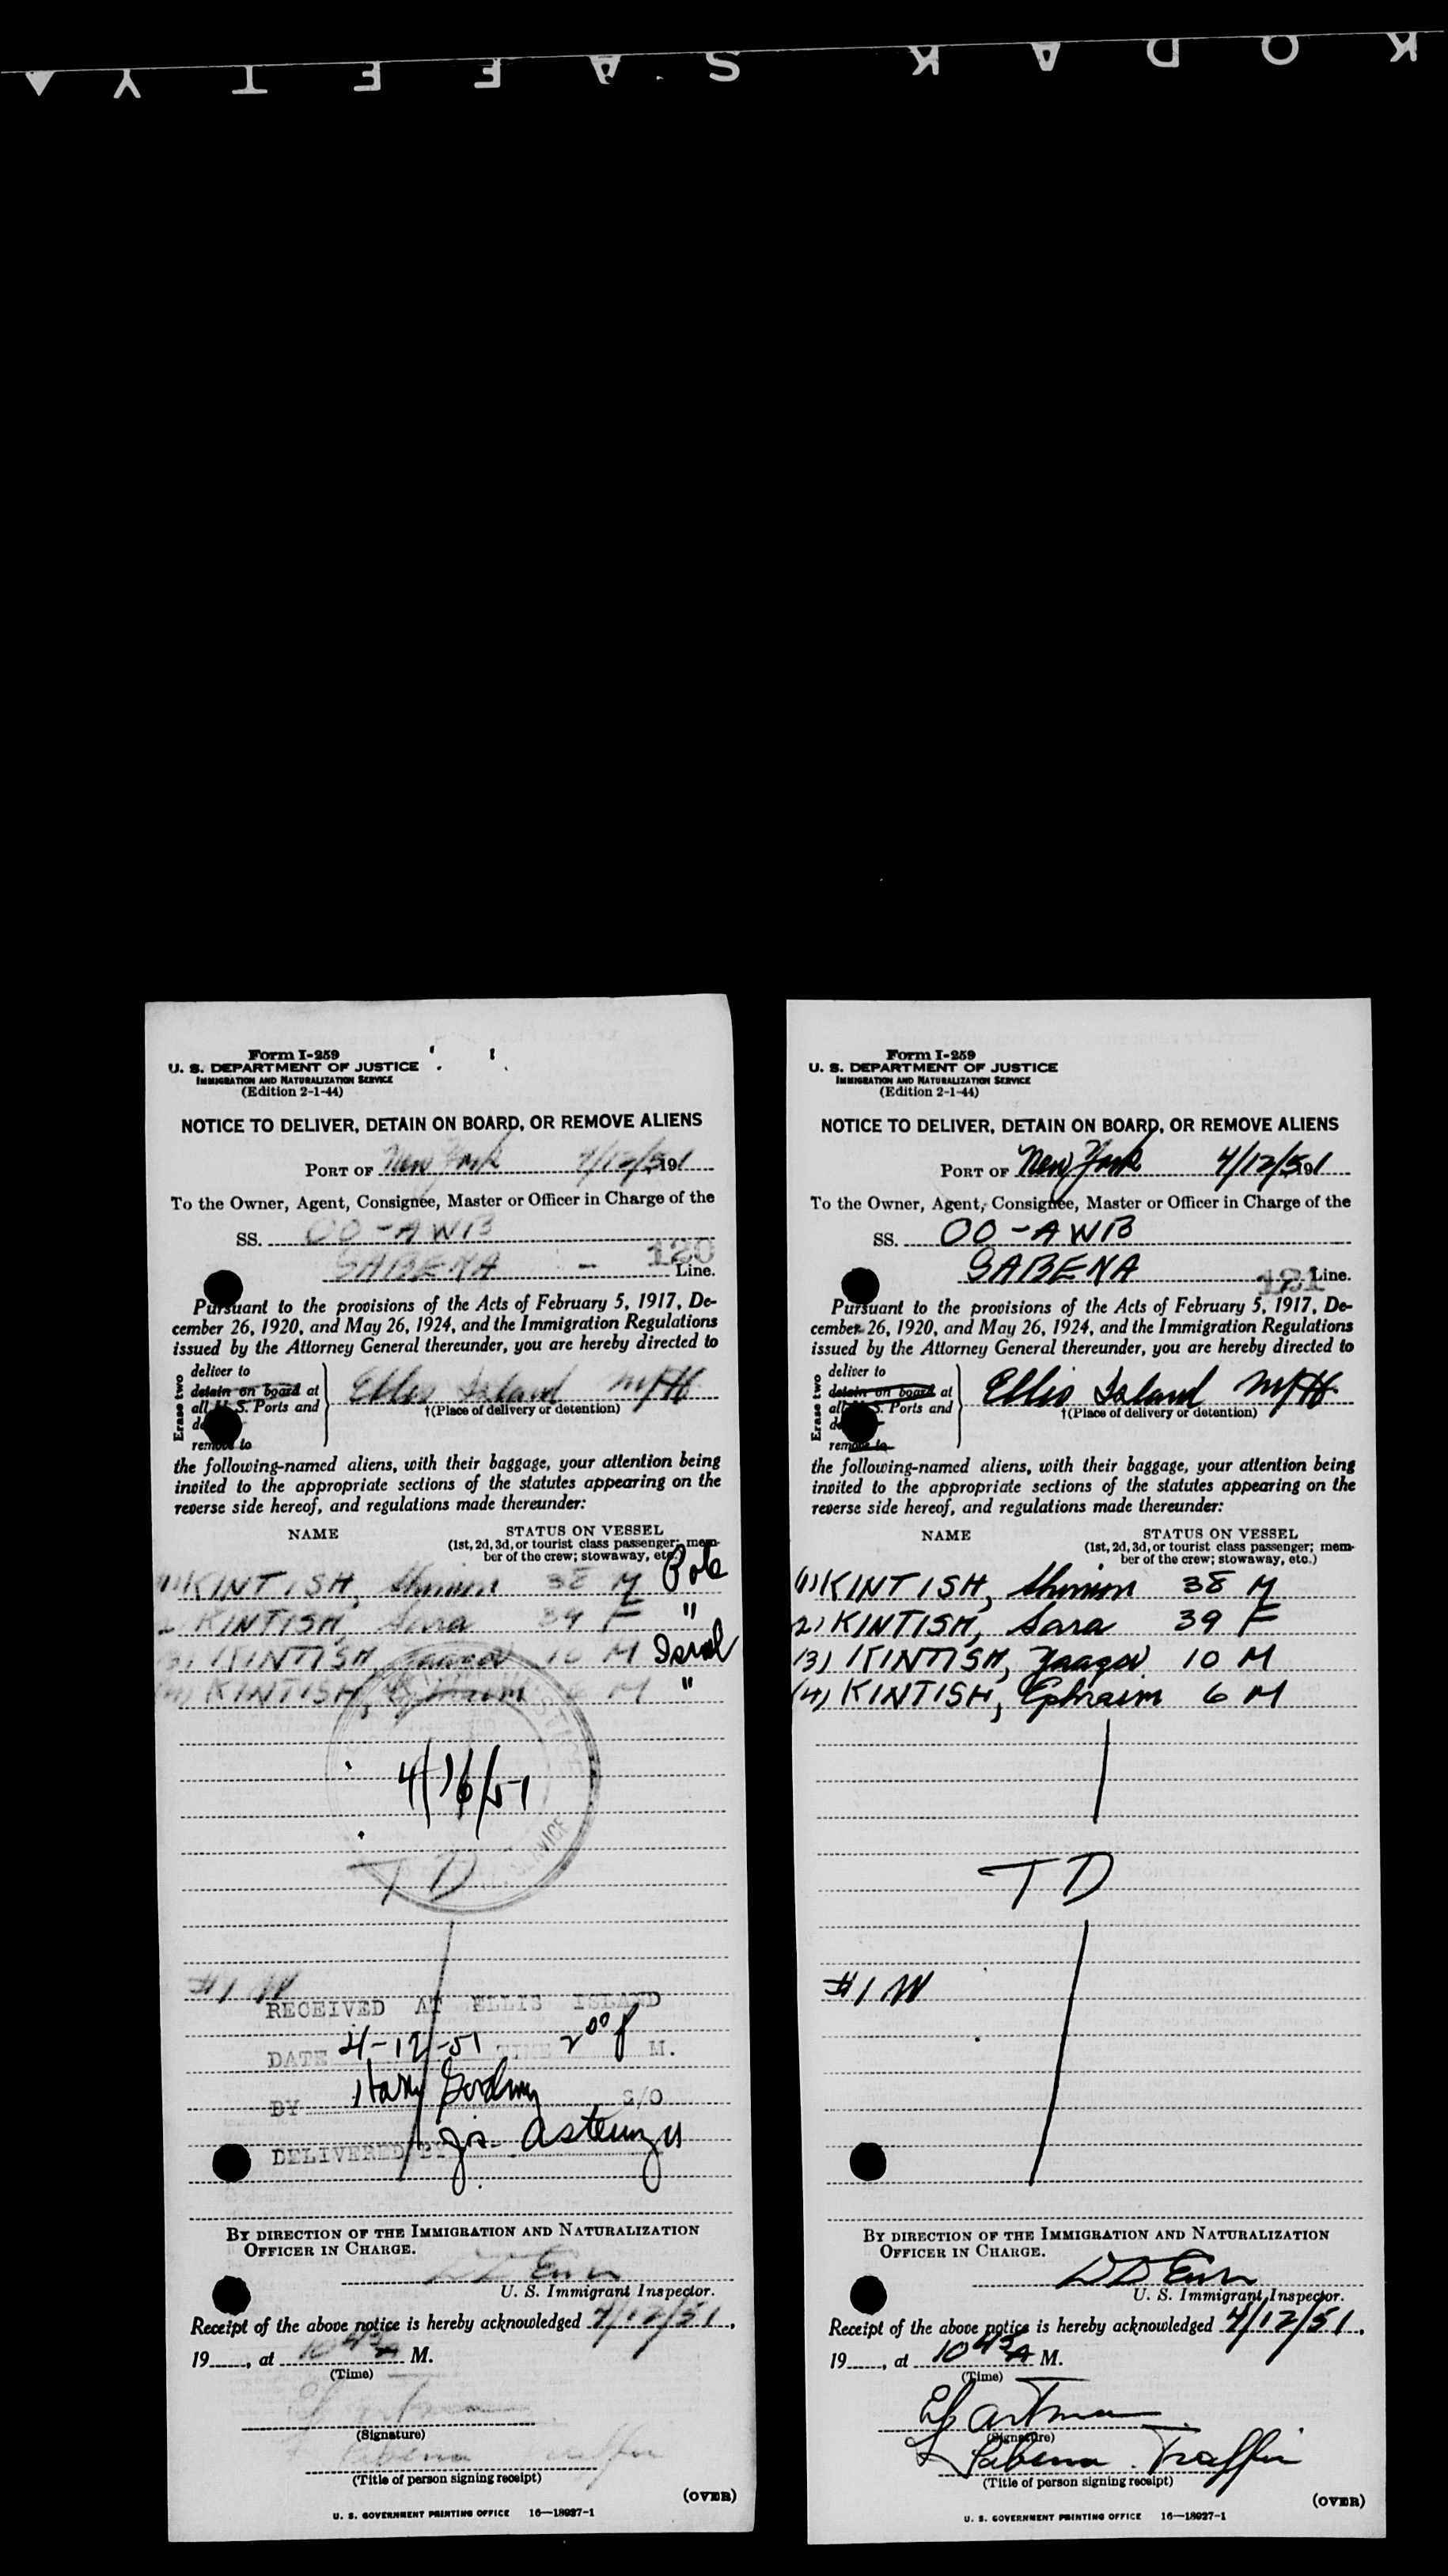 KODAK SAFETY
Form I-259
U. S. DEPARTMENT OF JUSTICE
IMMIGRATION AND NATURALIZATION SERVICE
(Edition 2-1-44)
NOTICE TO DELIVER, DETAIN ON BOARD, OR REMOVE ALIENS
PORT OF New York 4/12/51, 191
To the Owner, Agent, Consignee, Master or Officer in Charge of the
SS. OO-AWB
120
SABENA - Line.
Pursuant to the provisions of the Acts of February 5, 1917, De-
cember 26, 1920, and May 26, 1924, and the Immigration Regulations
issued by the Attorney General thereunder, you are hereby directed to
Erase two
deliver to
detain on board at
all U. S. Ports and
remove to
Ellis Island
†(Place of delivery or detention)
the following-named aliens, with their baggage, your attention being
invited to the appropriate sections of the statutes appearing on the
reverse side hereof, and regulations made thereunder:
NAME STATUS ON VESSEL
(1st, 2d, 3d, or tourist class passenger; mem-
ber of the crew; stowaway, etc.)
(1) KINTISH, Shimon 38 M Pole
2) KINTISH, Sara 39 F "
(3) KINTISH, Yaagov 10 M Israel
(4) KINTISH, Ephraim 6 M "
4/16/51
SERVICE
TD
#1 W
RECEIVED AT ELLIS ISLAND
DATE 4-12-51 TIME 2 00 P M.
BY Harry S/O
DELIVERED BY
BY DIRECTION OF THE IMMIGRATION AND NATURALIZATION
OFFICER IN CHARGE.
U. S. Immigrant Inspector.
Receipt of the above notice is hereby acknowledged 4/12/51,
19____, at 10 45 A M.
(Time)
(Signature)
Sabena Traffic
(Title of person signing receipt)
(OVER)
U. S. GOVERNMENT PRINTING OFFICE 16—18927-1
Form I-259
U. S. DEPARTMENT OF JUSTICE
IMMIGRATION AND NATURALIZATION SERVICE
(Edition 2-1-44)
NOTICE TO DELIVER, DETAIN ON BOARD, OR REMOVE ALIENS
PORT OF New York 4/12/51, 191
To the Owner, Agent, Consignee, Master or Officer in Charge of the
SS. OO-AWB
SABENA Line.
121
Pursuant to the provisions of the Acts of February 5, 1917, De-
cember 26, 1920, and May 26, 1924, and the Immigration Regulations
issued by the Attorney General thereunder, you are hereby directed to
Erase two
deliver to
detain on board at
all U. S. Ports and
remove to
Ellis Island
†(Place of delivery or detention)
the following-named aliens, with their baggage, your attention being
invited to the appropriate sections of the statutes appearing on the
reverse side hereof, and regulations made thereunder:
NAME STATUS ON VESSEL
(1st, 2d, 3d, or tourist class passenger; mem-
ber of the crew; stowaway, etc.)
(1) KINTISH, Shimon 38 M
2) KINTISH, Sara 39 F
(3) KINTISH, Yaagov 10 M
(4) KINTISH, Ephraim 6 M
TD
#1 W
BY DIRECTION OF THE IMMIGRATION AND NATURALIZATION
OFFICER IN CHARGE.
U. S. Immigrant Inspector.
Receipt of the above notice is hereby acknowledged 4/12/51,
19____, at 10 45 A M.
(Time)
(Signature)
Sabena Traffic
(Title of person signing receipt)
(OVER)
U. S. GOVERNMENT PRINTING OFFICE 16—18927-1